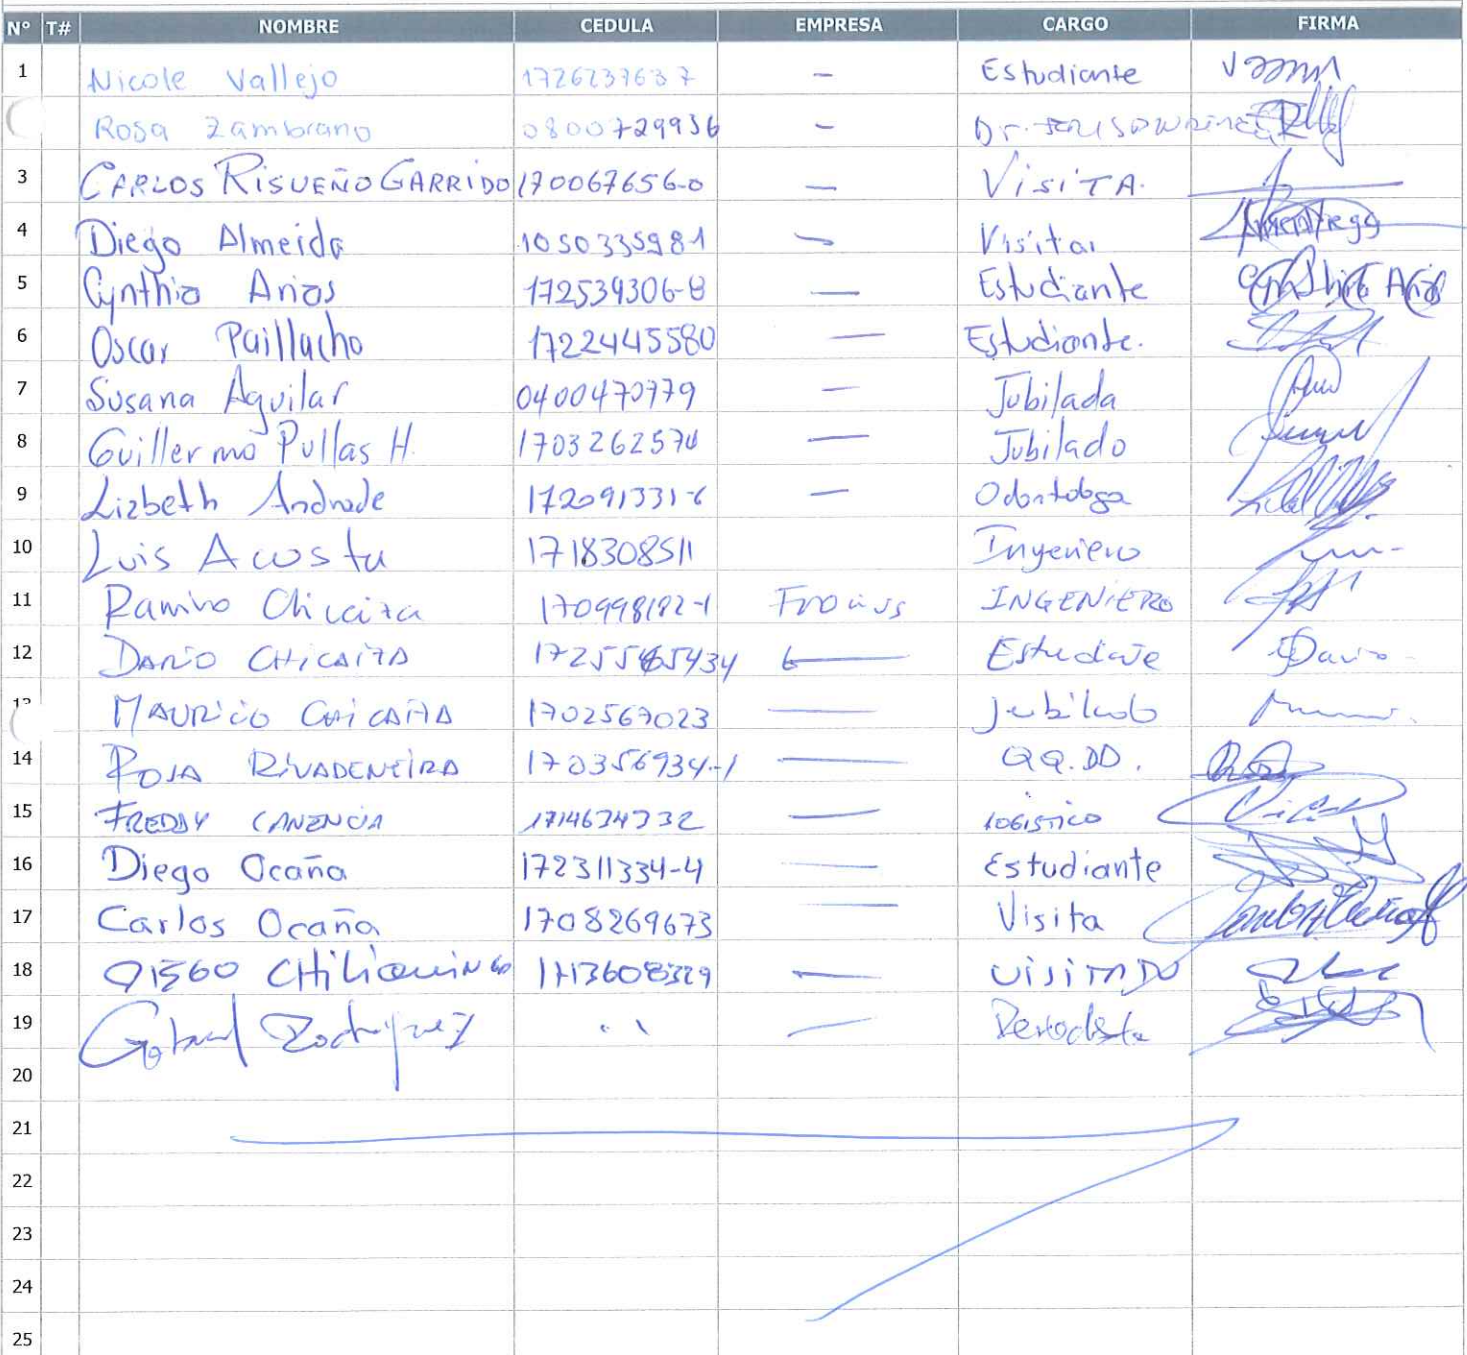 N° T# NOMBRE CEDULA EMPRESA CARGO FIRMA
1 Nicole Vallejo 1726237637 — Estudiante
Rosa Zambrano 0800729936 — Dr.
3 CARLOS RISUEÑO GARRIDO 170067656-0 — VISITA.
4 Diego Almeida 105033598-1 — Visita
5 Cynthia Arias 172539306-8 — Estudiante Cynthia Arias
6 Oscar Paillacho 1722445580 — Estudiante.
7 Susana Aguilar 0400470779 — Jubilada
8 Guillermo Pullas H. 1703262574 — Jubilado
9 Lizbeth Andrade 172091331-6 — Odontologa
10 Luis Acosta 1718308511 Ingeniero
11 Ramiro Chicaiza 170998192-1 INGENIERO
12 DARIO CHICAIZA — Estudiante Dario
13 MAURICIO CHICAIZA 1702567023 — jubilado
14 ROSA RIVADENEIRA 170356934-1 — QQ.DD.
15 FREDDY CANENCIA 1714634332 — LOGISTICO
16 Diego Ocaña 172311334-4 — Estudiante
17 Carlos Ocaña 1708269673 — Visita
18 CHILIQUINGO 1713608329 — VISITADO
19 Gabriel Rodriguez — Periodista
20
21
22
23
24
25